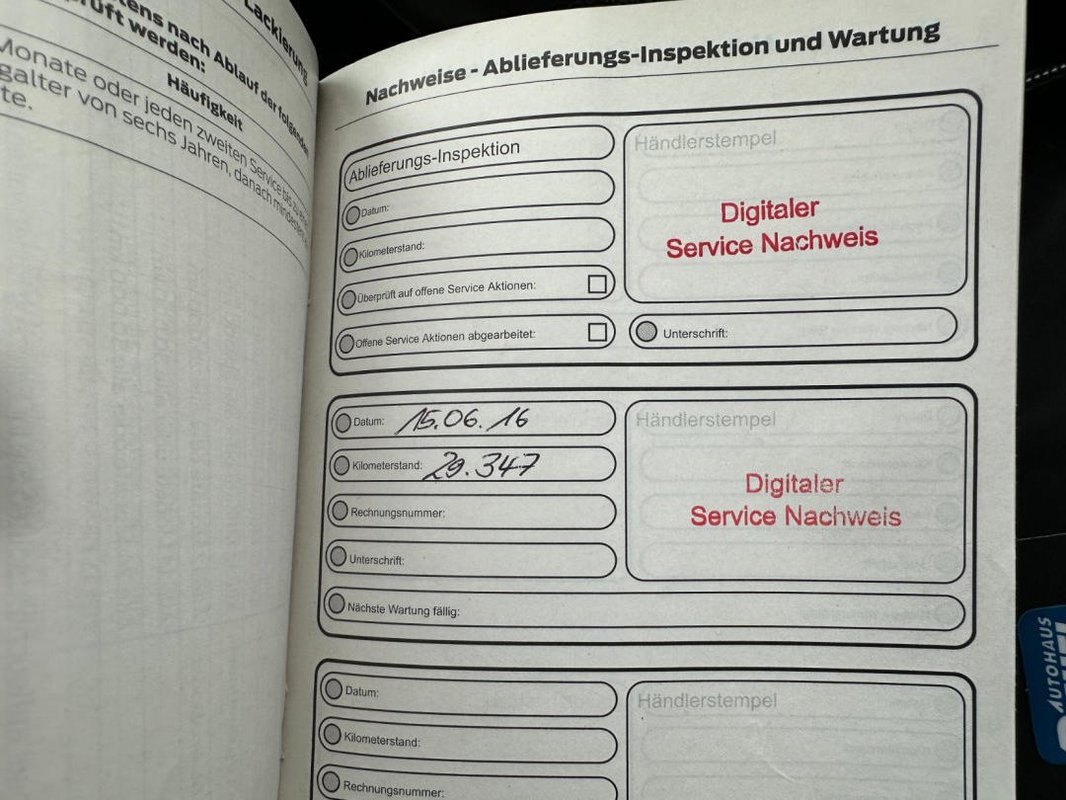 Lackierung
tens nach Ablauf der folgenden
rüft werden:
Häufigkeit
Monate oder jeden zweiten Service bis zu
galter von sechs Jahren, danach
te.
Nachweise - Ablieferungs-Inspektion und Wartung
Ablieferungs-Inspektion
Datum:
Kilometerstand:
Überprüft auf offene Service Aktionen:
Offene Service Aktionen abgearbeitet:
Händlerstempel
Digitaler
Service Nachweis
Unterschrift:
Datum: 15.06.16
Kilometerstand: 29.347
Rechnungsnummer:
Unterschrift:
Nächste Wartung fällig:
Händlerstempel
Digitaler
Service Nachweis
Datum:
Kilometerstand:
Rechnungsnummer:
Händlerstempel
AUTOHAUS